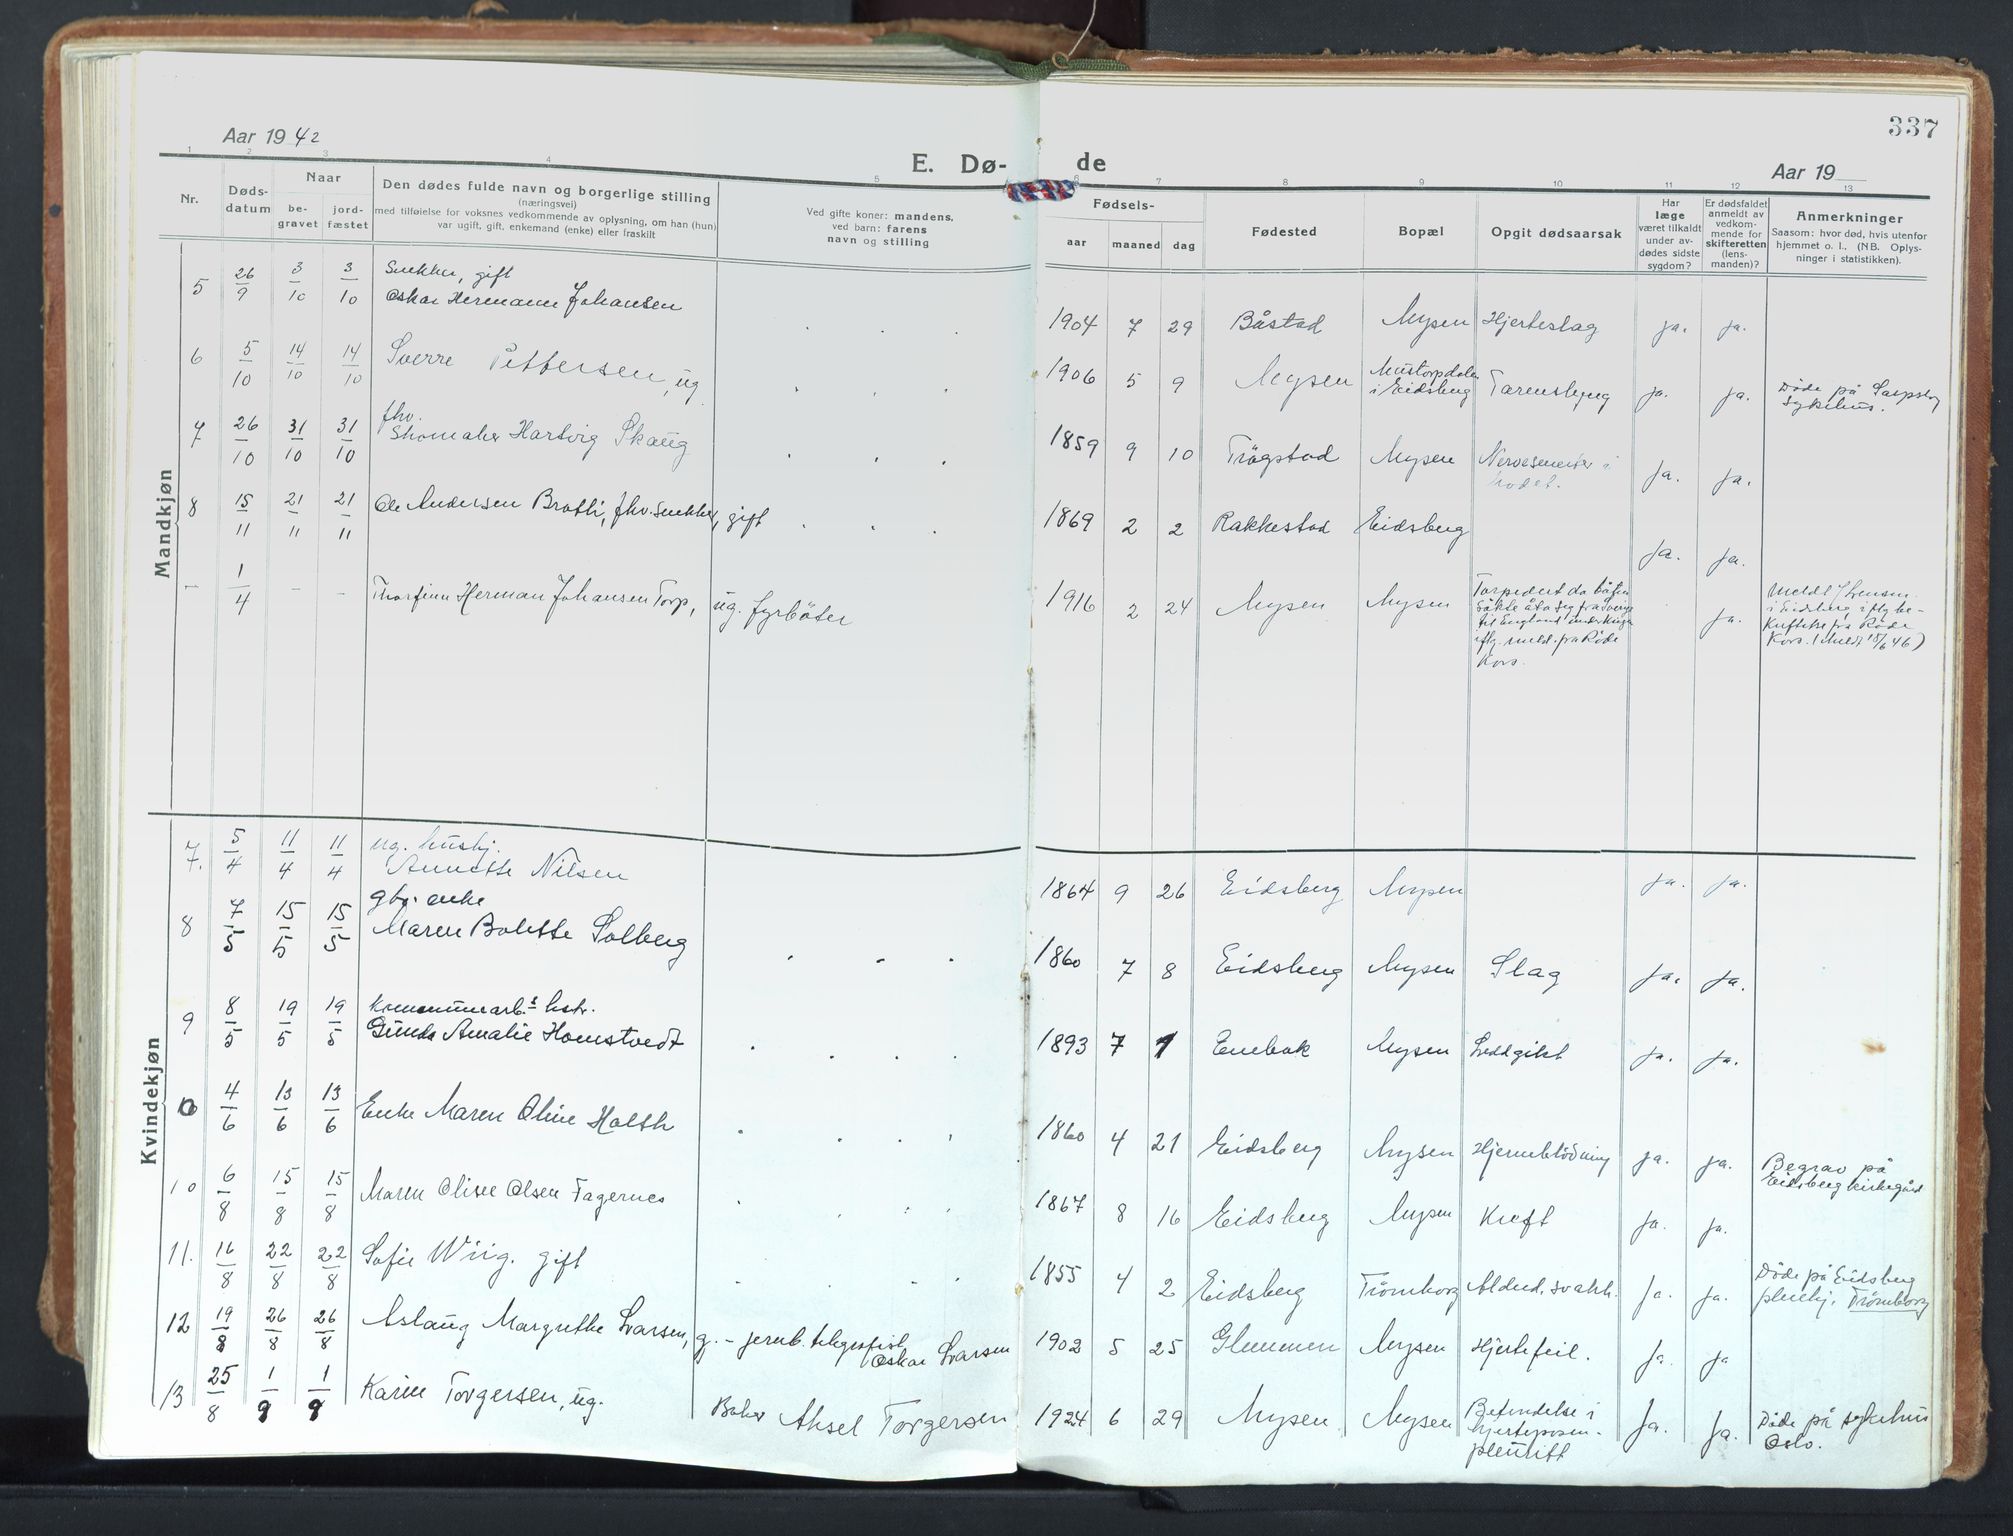 337
Aar 19 42
E. Dø- de
Aar 19
1 2 3 4 5 6 7 8 9 10 11 12 13
Nr.
Døds-
datum
Naar
be-
gravet
jord-
fæstet
Den dødes fulde navn og borgerlige stilling
(næringsvei)
med tilføielse for voksnes vedkommende av oplysning, om han (hun)
var ugift, gift, enkemand (enke) eller fraskilt
Ved gifte koner: mandens,
ved barn: farens
navn og stilling
Fødsels-
aar maaned dag
Fødested
Bopæl
Opgit dødsaarsak
Har
læge
været tilkaldt
under av-
dødes sidste
sygdom?
Er dødsfaldet
anmeldt av
vedkom-
mende for
skifteretten
(lens-
manden)?
Anmerkninger
Saasom: hvor død, hvis utenfor
hjemmet o. l., (NB. Oplys-
ninger i statistikken).
Mandkjøn
5 26/9 3/10 3/10 Snekker, gift
Oskar Hermann Johansen
1904 7 29 Båstad Mysen Hjerteslag ja. ja.
6 5/10 14/10 14/10 Sverre Pettersen, ug
1906 5 9 Mysen Mustorpdalen
i Eidsberg Tarenslyng ja. ja. Døde på Sarpsborg
sykehus.
7 26/10 31/10 31/10 fhv.
Skomaker Hartvig Skaug
1859 9 10 Trøgstad Mysen Nervesmerter i
hodet. ja. ja.
8 15/11 21/11 21/11 Ole Andersen Bratli, fhv. snekker, gift
1869 2 2 Rakkestad Eidsberg ja. ja.
- 1/4 - - Thorfinn Herman Johansen Torp, ug. fyrbøter
1916 2 24 Mysen Mysen Torpedert da båten
søkte å ta seg fra Sverige
til England under krigen
iflg. meld. fra Røde
Kors. ja. Meldt Lensm.
i Eidsberg iflg be-
kreftelse fra Røde
Kors. (Meldt 18/6 46)
Kvindekjøn
7. 5/4 11/4 11/4 ug. hushj.
Annette Nilsen
1864 9 26 Eidsberg Mysen ja. ja.
8 7/5 15/5 15/5 gbr. enke
Maren Bolette Solberg
1860 7 8 Eidsberg Mysen Slag ja. ja.
9 8/5 19/5 19/5 Kommunearb.s hstr.
Gunda Amalie Homstvedt
1893 7 1 Enebak Mysen Leddgikt ja. ja.
0 4/6 13/6 13/6 Enke Maren Oline Holth
1860 4 21 Eidsberg Mysen Hjerneblødning ja. ja. Begrav på
Eidsberg kirkegård
10 6/8 15/8 15/8 Maren Olise Olsen Fagernes
1867 8 16 Eidsberg Mysen Kreft ja. ja.
11. 16/8 22/8 22/8 Sofie Wiig. gift
1855 4 2 Eidsberg Trømborg Alderd. svakh. ja. ja. Døde på Eidsberg
pleiehj. Trømborg
12 19/8 26/8 26/8 Aslaug Margrethe Larsen, g. - jernb. telegrafist
Oskar Larsen
1902 5 25 Glemmen Mysen Hjertefeil. ja. ja
13 25/8 1/9 1/9 Karin Torgersen, ug. Baker Aksel Torgersen
1924 6 29 Mysen Mysen Betendelse i
hjerteposen.
pleuritt ja. ja. Døde på sykehus
Oslo.